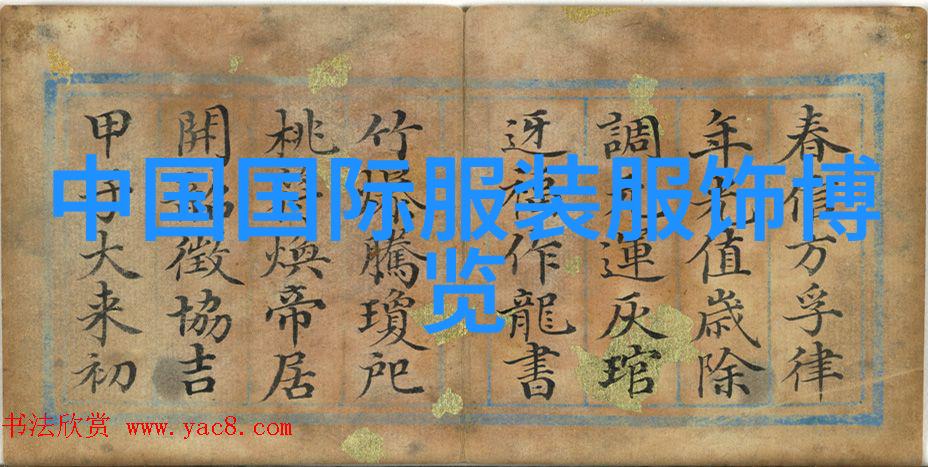 中国国际服装服饰博
览
春信万孚律
年光值歲除
調元運灰琯
迓福作龍書
竹爆騰瓊戺
桃符煥帝居
開韶徵協吉
甲子大来初
书法欣赏 www.yac8.com